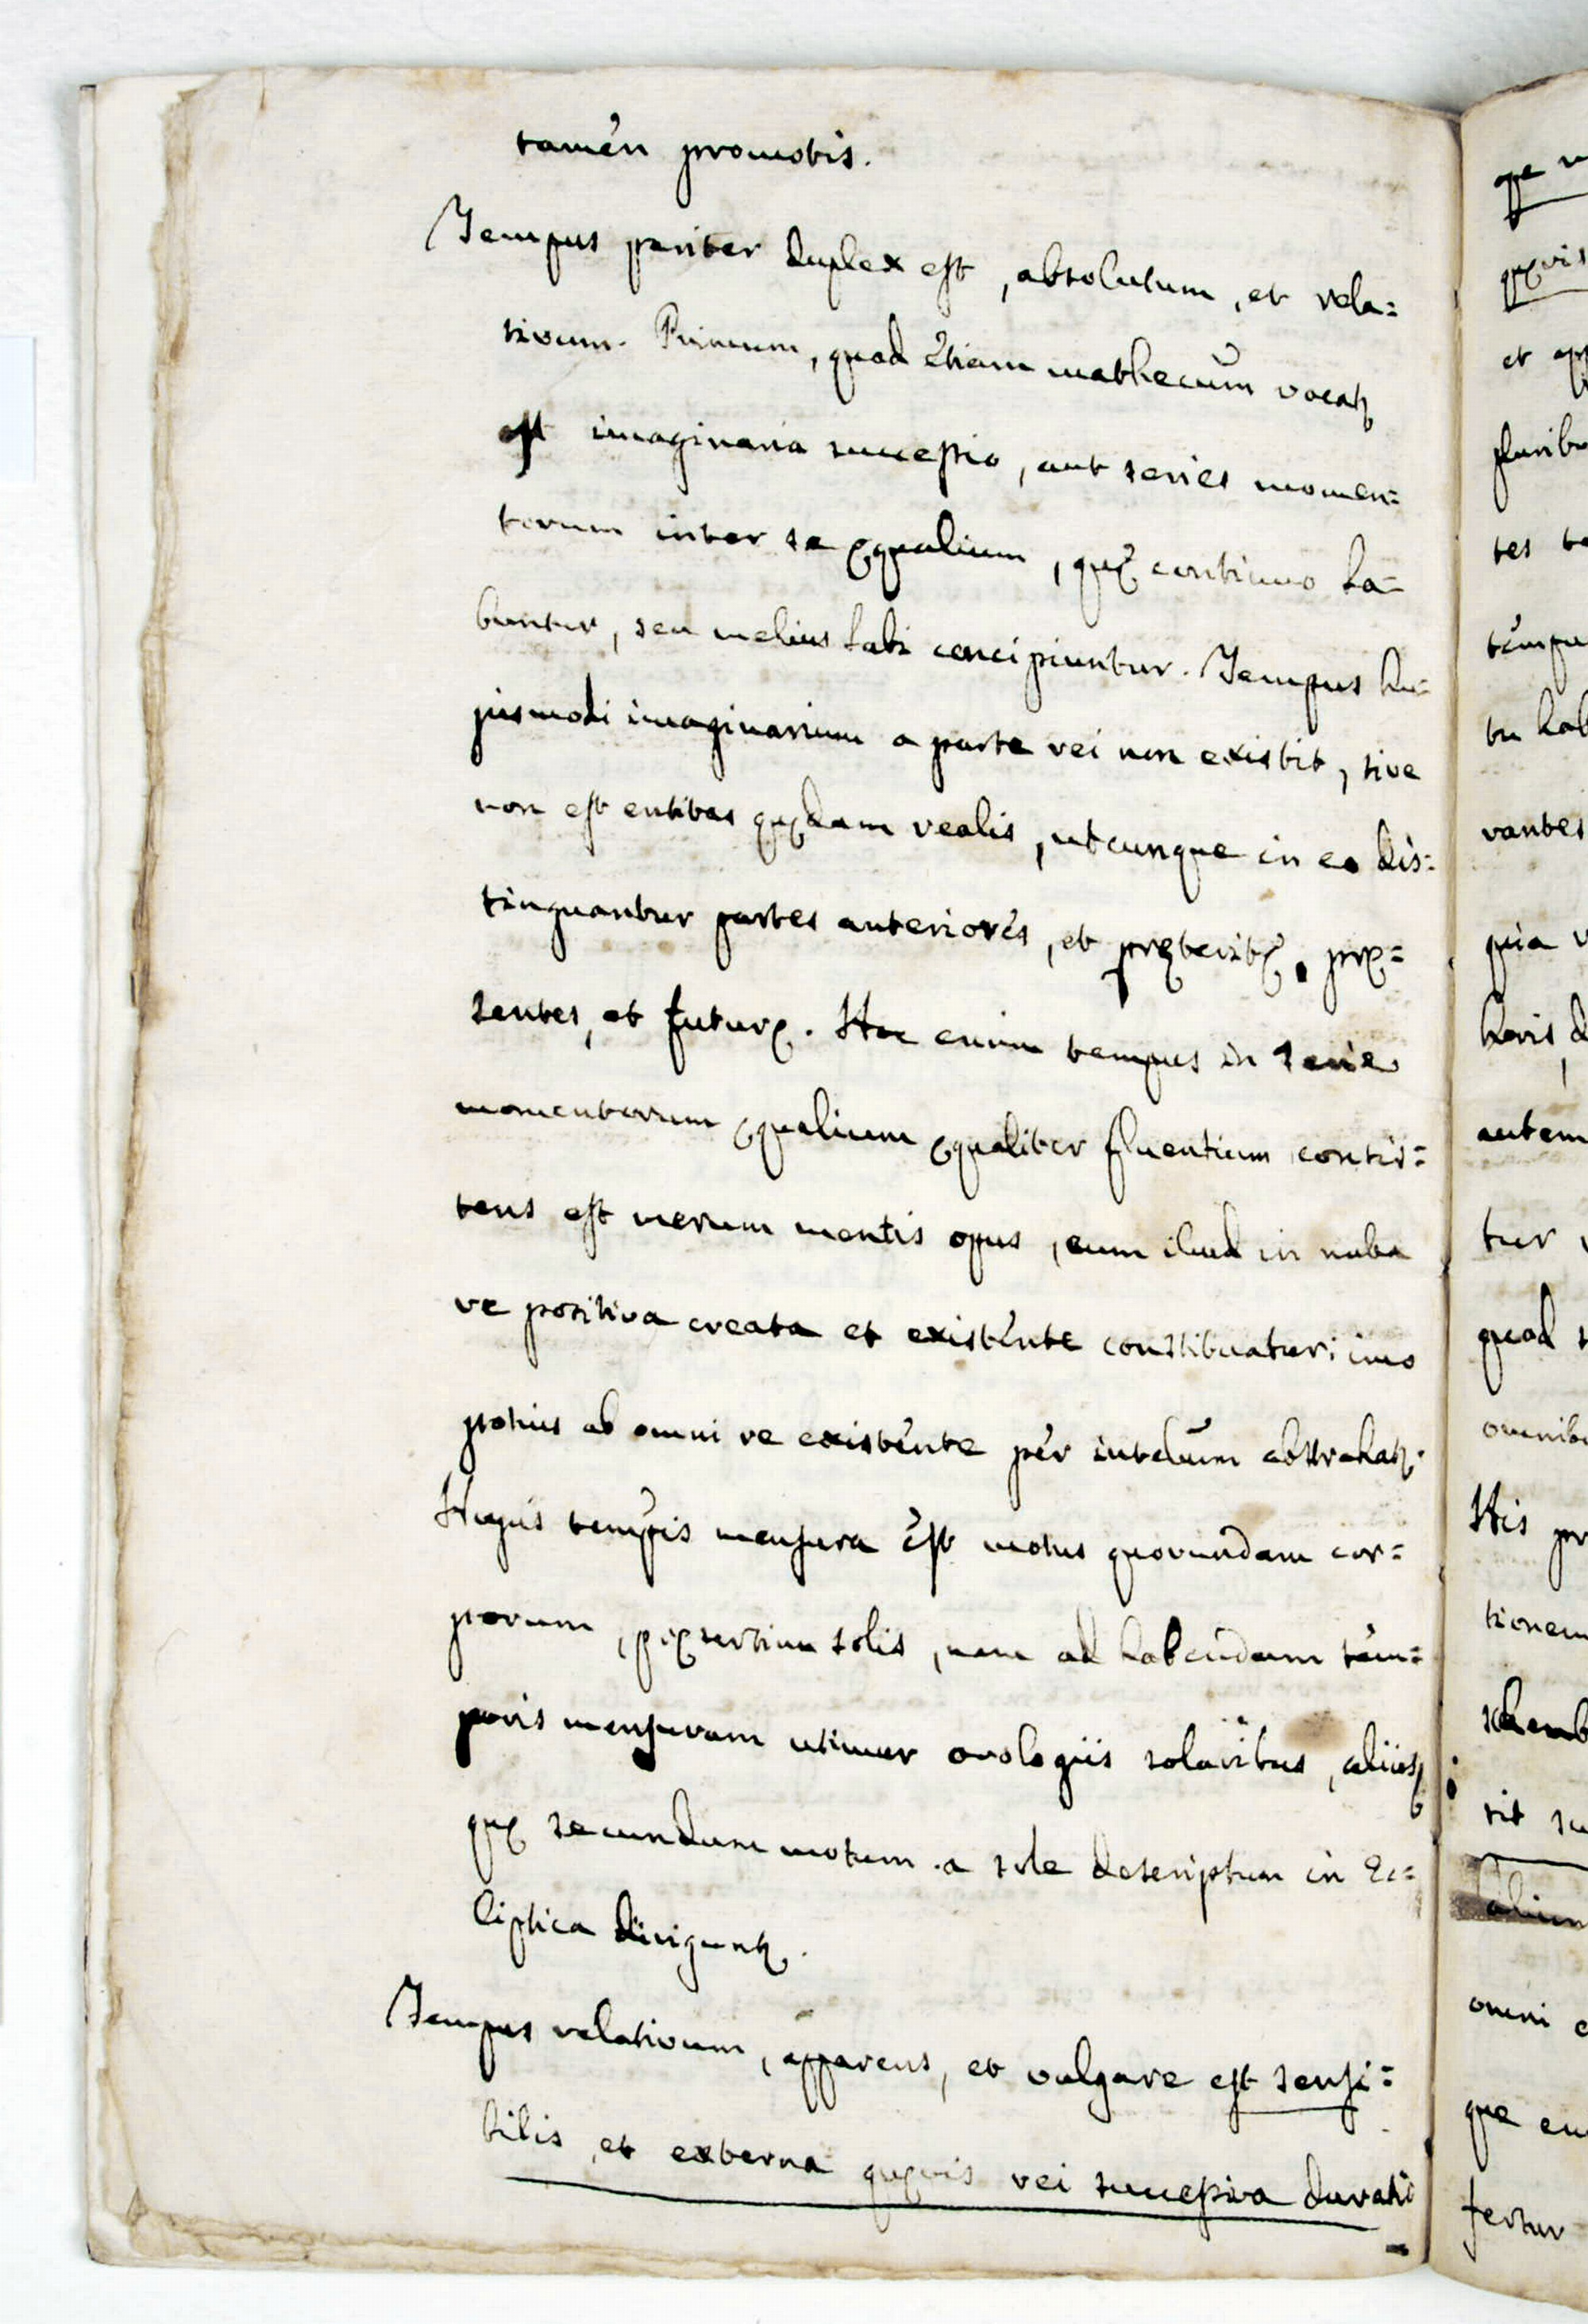 tamén promotis.
Tempus pariter duplex est, absolutum, et rela=
tivum. Primum, quod étiam mathecũm vocatꝫ
est imaginaria successio, aut series momen=
torum inter se ęqualium, quę continuo la=
buntur, seu melius labi concipiuntur. Tempus hu=
jusmodi imaginarium a parte rei non existit, sive
non est entitas quędam realis, utcunque in eo dis=
tinguantur partes anteriorés, et pręteritę, prę=
sentes, et futurę. Hoc enim tempus in serie
momentorum ęqualium ęqualiter fluentium consis=
tens est merum mentis opus, cum illud in nulla
re positiva creata et existénte constituatur: imo
potius ab omni re existénte pér intelũm abstrahatꝫ.
Hujus tempris mensura ést motus quorundam cor=
porum, pręsertim solis, nam ad habéndam tém=
poris mensuram utimur orologiis solaribus, aliisqꝫ
quę secundum motum a sole descriptum in Ec=
liptica diriguntꝫ.
Tempus relativum, apparens, et vulgare est sensi=
bilis, et externa quęvis rei successiva duratio
ope
quęvis
et
tes
tu
vantes
quia
horis
autem
tur
quod
His
tionem
sit
omni
que
fertur